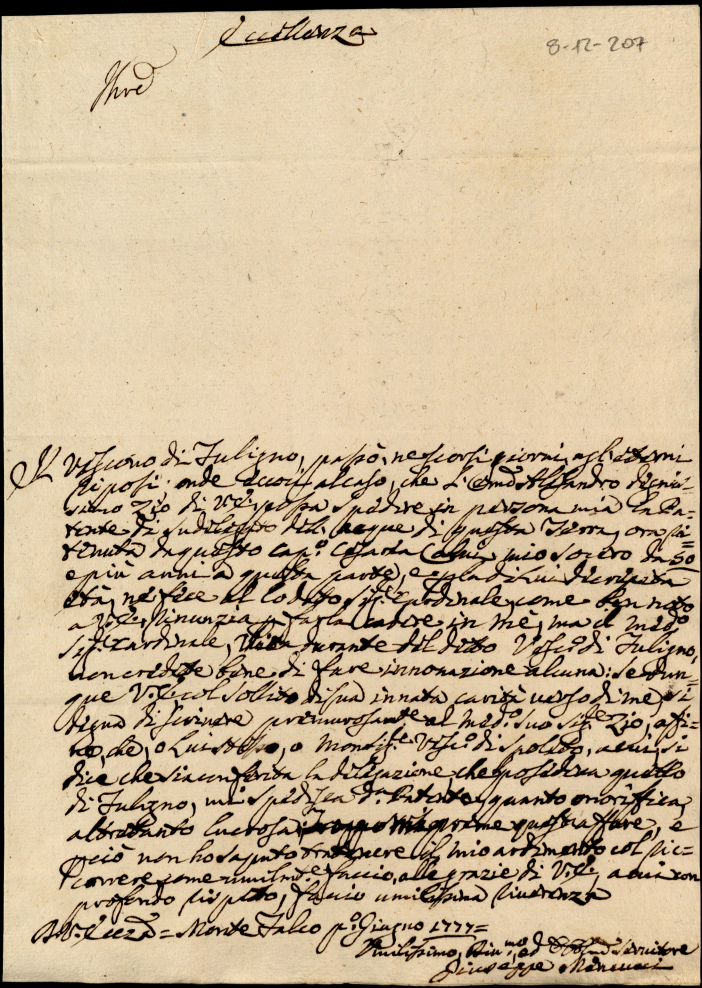 Eccellenza
8-12-207
Il Vescovo di Fuligno, passò, ne scorsi giorni agl'eterni
riposi; onde al caso, che l' Alesandro degnis=
simo Zio di V. E. possa spedire in persona mia la Pa=
tente di delle acque di questa Terra, ora
tenuta da questo cap.o mio socero da 50
e più anni a questa parte, e per la di Lui decrepita
età, ne fece al lodato Sig.r Cardinale come ben noto
a V. E. rinunzia p farla cadere in me, ma il med.o
Sig.r Cardinale, Vita durante del detto Vesc.o di Fuligno,
non credette bene di fare innovazione alcuna: se dun=
que V. E. col solito di sua innata carità verso di me, si
degna di scrivere premurosam.te al med.o suo Sig.r Zio, affi=
che, o Lui stesso, o Monsig.r Vesc.o di Spoleto, a cui si
dice che sia conferita la delegazione che possedeva quello
di Fuligno, mi spedisca d.a Patente quanto onorifica,
altretanto lucrosa; troppo mi preme questo affare, e
perciò non ho saputo trattenere il mio ardimento col ric=
correre come umilm.te faccio, alle grazie di V. E., a cui con
profondo rispetto, faccio umilissima riverenza
Di V.ra Ecc.za = Monte Falco p.o Giugno 1777=
Umilissimo, ed Servitore
Giuseppe